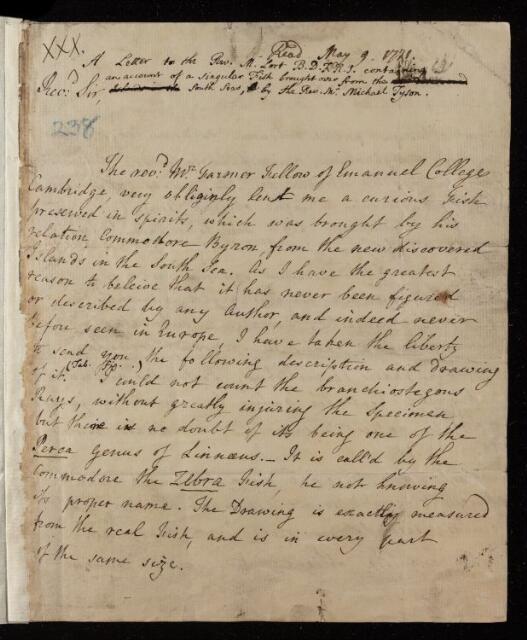 XXX.
Read May 9. 1771.
A Letter to the Rev. M. Lort B.D. F.R.S. containing
an account of a singular Fish brought over from the
Rev.d Sir,
South Seas, by the Rev. Mr. Michael Tyson.
238
The rev.d Mr. Farmer Fellow of Emanuel College
Cambridge very obligingly lent me a curious Fish
preserved in spirits, which was brought by his
relation Commodore Byron from the new discovered
Islands in the South Sea. As I have the greatest
reason to beleive that it has never been figured
or described by any Author, and indeed never
before seen in Europe, I have taken the liberty
to send you the following description and drawing
(Tab. Fig. )
of it. I could not count the branchiostegous
Rays, without greatly injuring the Specimen
but there is no doubt of its being one of the
Perca Genus of Linnæus._ It is call'd by the
Commodore the Zebra Fish, he not knowing
its proper name. The Drawing is exactly measured
from the real Fish, and is in every part
of the same size.